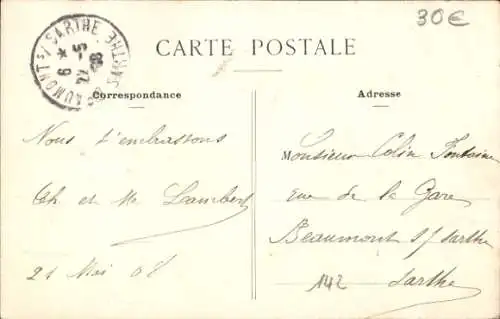 30€
BEAUMONT S/ SARTHE
6 *
22 - 5
08
SARTHE
CARTE POSTALE
Correspondance
Nous t'embrassons
Ch et M Lambert
21 Mai 08
Adresse
Monsieur Colin Fontaine
rue de la Gare
Beaumont s/ sarthe
142 sarthe